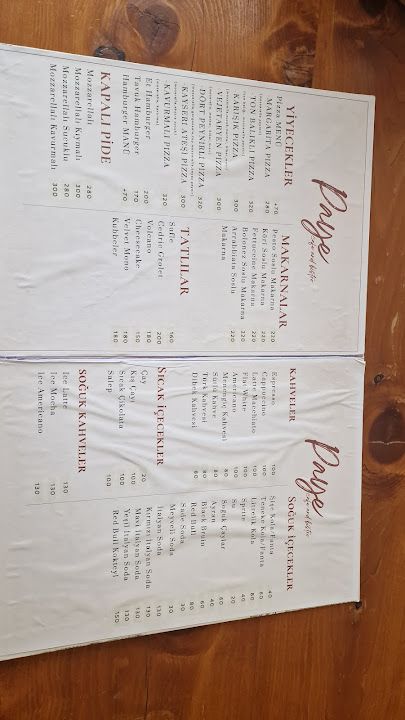 Paye
cafe and bistro
YİYECEKLER
Pizza MENÜ +70
MARGARITA PIZZA 280
TON BALIKLI PİZZA 320
KARIŞIK PİZZA 300
VEJETARYEN PİZZA 300
DÖRT PEYNİRLİ PİZZA 320
KAYSERİ ATEŞİ PİZZA 300
KAVURMALI PİZZA 320
Et Hamburger 200
Tavuk Hamburger 170
Hamburger MANÜ +70
KAPALI PİDE
Mozzarellalı 280
Mozzarellalı Kıymalı 300
Mozzarellalı Sucuklu 280
Mozzarellalı Kavurmalı 300
MAKARNALAR
Pesto Soslu Makarna 220
Köri Soslu Makarna 220
Fettuccine Makarna 220
Bolonez Soslu Makarna 220
Arrabbiata Soslu
Makarna 220
TATLILAR
Sufle 160
Cedric Grolet 200
Volcano 180
Cheesecake 150
Velvet Mono 180
Kubbeler 180
Paye
cafe and bistro
KAHVELER
Espresso 100
Cappuccino 100
Latte Macchiato 100
Flat White 100
Americano 100
Menengiç Kahvesi 80
Sütlü Kahve 80
Türk Kahvesi 80
Dibek Kahvesi 80
SICAK İÇECEKLER
Çay 20
Kış Çayı 100
Sıcak Çikolata 100
Salep 100
SOĞUK KAHVELER
Ice Latte 130
Ice Mocha 130
Ice Americano 130
SOĞUK İÇECEKLER
Şişe Kola/Fanta 40
Teneke Kola/Fanta 60
Litrelik Kola 80
Sprite 40
Su 20
Soğuk Çaylar 60
Ayran 40
Black Bruin 60
Red Bull 80
Sade Soda 30
Meyveli Soda 30
İtalyan Soda 130
Kırmızı İtalyan Soda 130
Mavi İtalyan Soda 130
Yeşil İtalyan Soda 130
Red Bull Kokteyl 150